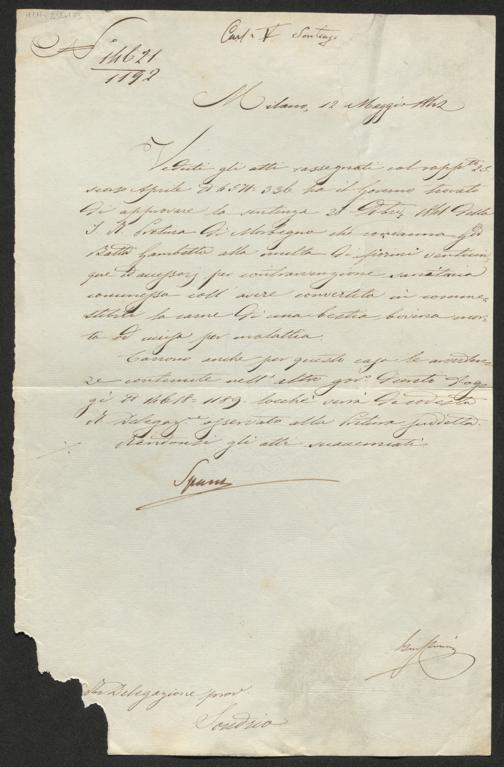 N° 14621
1192
Milano, 12 Maggio 1842
Veduti gli atti rassegnati col rapp.to 25
scorso Aprile N° 336 ha il Governo trovato
di approvare la sentenza 30 1841 della
I. R. Pretura di Morbegno che condanna
Batta Gambetta alla multa di fiorini
que ed accessorj per contravvenzione sanitaria
commessa coll' avere convertita in comme-
stibile la carne di una bestia bovina mor-
ta od uccisa per malattia.
Carrono anche per questo caso le avverten-
ze contenute nell' altro gov.o Decreto d'og-
gi N° 1189. locchè sarà da codesta
R. Delegaz.e osservato alla Pretura suddetta
Rendonsi gli atti suaccennati.
Delegazione prov.
Sondrio